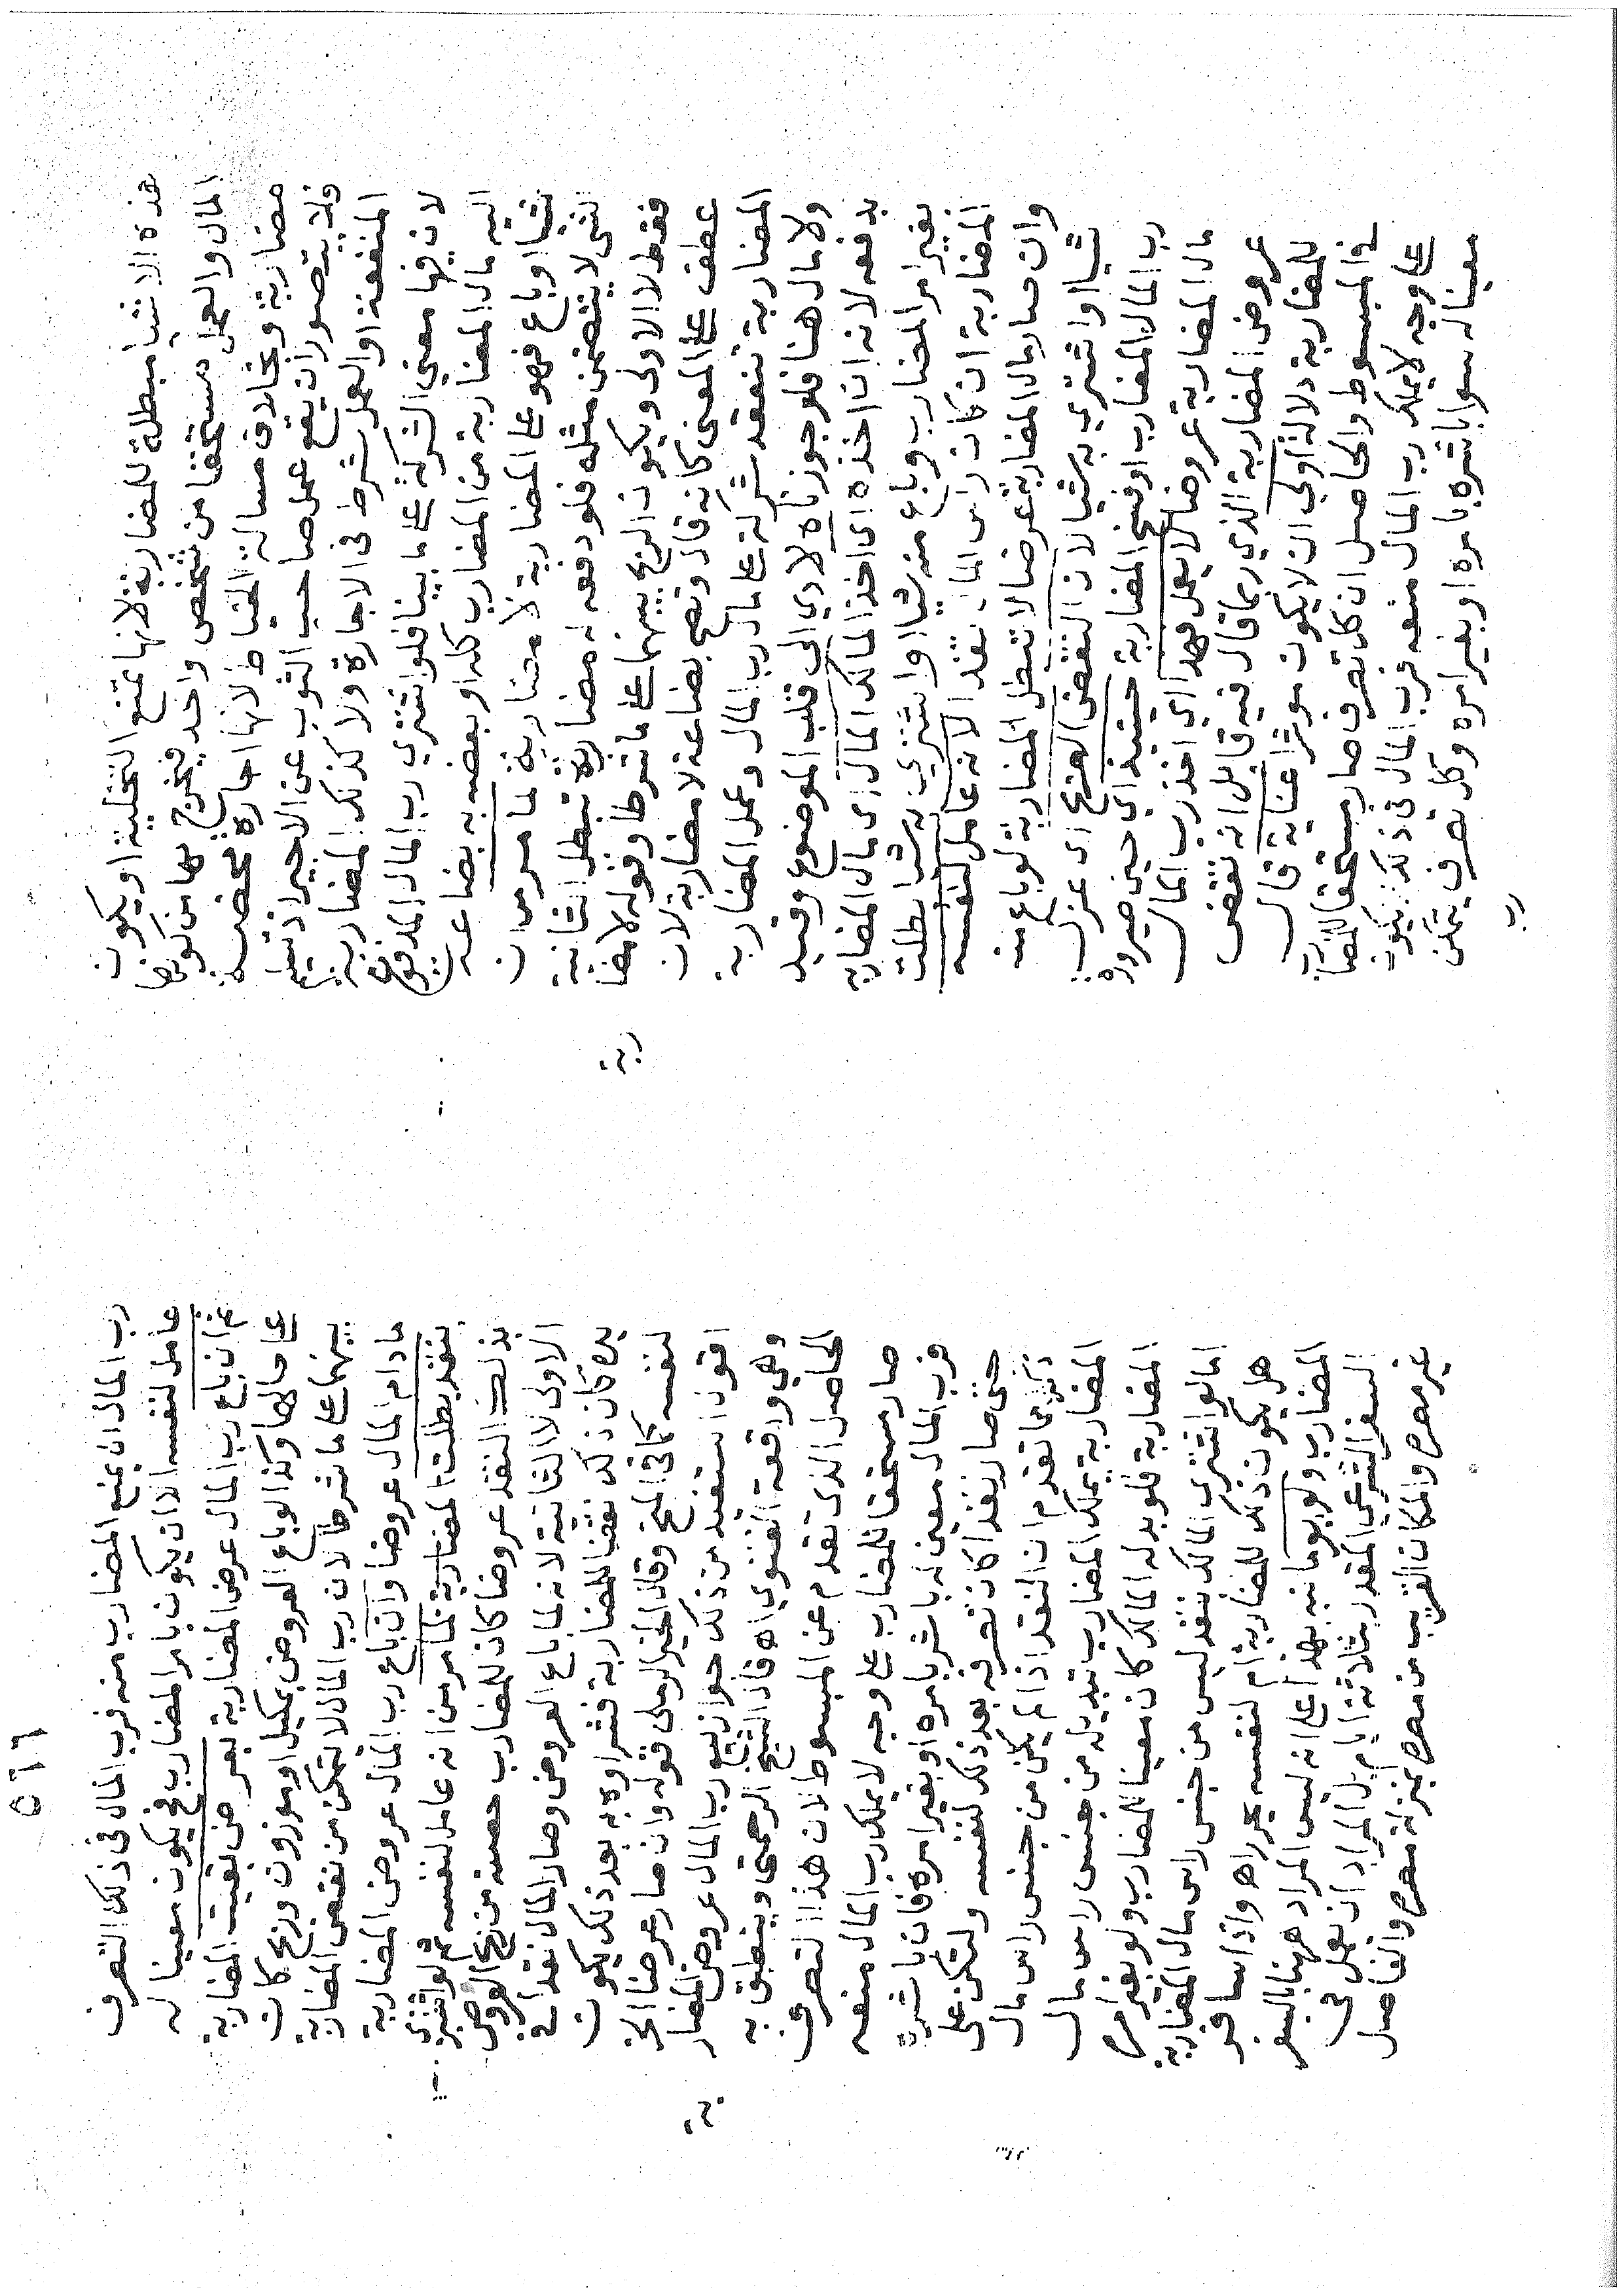 هذه الاشيا مبطلة للمضاربة لانها تمنع التخلية او يكون
المال والعمل مستحقا من شخص واحد فيخرج بها من كونها
مضاربة وبخلاف مسالة الخياط لانها اجارة محضة
فلا يتصور ان يقع عمل صاحب الثوب عن الاجير اذ تسليم
المنفعة او العمل شرط فى الاجارة ولا كذلك المضاربة
لان فيها معنى الشركة على ما بينا فلو اشترى رب المال المدفوع
اليه مال المضاربة من المضارب كله او بعضه به بضاعة
شيا او باع فهو على المضاربة لا مضاربة لما مر من ان
الشى لا يتضمن مثله فلو دفعه له مضاربة تبطل الثانية
فقط لا الاولى ويكون الربح بينهما على ما شرطا وقوله لا مضا
ربة
عطف على المعنى كانه قال وتصح بضاعة لا مضاربة لان
المضاربة تنعقد شركة على مال رب المال وعمل المضاربة
ولا مال هنا فلو جوزناه لادى الى قلب الموضوع وقيد
بدفعه لانه ان اخذه اى اخذ المالك المال اى مال المضاربه
بغير امر المضارب وباع منه شيا او اشترى به شيا بطلت
المضاربة ان كان راس المال نقدا لانه عامل لنفسه
وان صار مال المضاربة عرضا لا تبطل المضاربة لو باع منه
شيا او اشترى به شيا لان النقض الصريح اى عزل
رب المال المضارب او فسخ المضاربة حينئذ اى حين صيرورة
مال المضاربة عروضا لا يعمل فهذا اى اخذ رب المال
عروض المضاربة الذى ربما قال فيه قايل انه نقض
للمضاربة دلالة اولى ان لا يكون موثرا عناية قال
فى المبسوط والحاصل ان كل تصرف صار مستحقا للمضارب
على وجه لا يملك رب المال منعه فرب المال فى ذلك يكون
معينا له سوا باشره بامره او بغير امره وكل تصرف يتمكن
رب
٥٦٦
رب المال ان يمنع المضارب منه فرب المال فى ذلك التصرف
عامل لنفسه الا ان يكون بامر المضارب فح يكون معينا له
ثم ان باع رب المال عرض المضاربة بعرض بقيت المضاربة
على حالها وكذا لو باع العروض بمكيل او موزون وربح كان
بينهما على ما شرطا لان رب المال لا تمكن من نقض المضاربة
مادام المال عروضا وان باع رب المال عروض المضاربة
بنقد بطلت المضاربة لما مر من انه عامل لنفسه ثم لو اشترى
بذلك النقد عروضا كان للمضارب حصته من ربح العروض
الاولى لا الثانية لانه لما باع العروض وصار المال نقدا فى
يده كان ذلك نقضا للمضاربة فشراوه به بعد ذلك يكون
لنفسه كما فى المنح وقال الخير الرملى قوله وان صار عرضا الخ
اقول استفيد من ذلك جواز بيع رب المال عروض المضار
بة
وهى واقعة الفتوى اه قال الشيخ الرحمتى وينطبق به
الحاصل الذى تقدم عن المبسوط لان هذا التصرف
صار مستحقا للمضارب على وجه لا يملك رب المال منعه
فرب المال معين له باشر بامره او بغير امره فان باشره
حتى صار نقدا كان تصرفه بعد ذلك لنفسه ولتكن على
ذكر مما تقدم ان النقد اذا لم يكن من جنس راس مال
المضاربة يملك المضارب تبديله من جنس راس مال
المضاربة فلو بدله المالك كان معينا للمضارب ولو بغير امره
اما لو اشترى المالك بنقد ليس من جنس راس مال المضاربة
هل يكون ذلك للمضاربة ام لنفسه يحرر اه واذا سافر
المضارب ولو يوما نبه بهذا على انه ليس المراد ههنا بالسفر
السفر الشرعى المقدر بثلاثة ايام بل المراد ان يعمل فى
غير مصره والمكان القريب من مصره بمنزلة مصره والفاصل